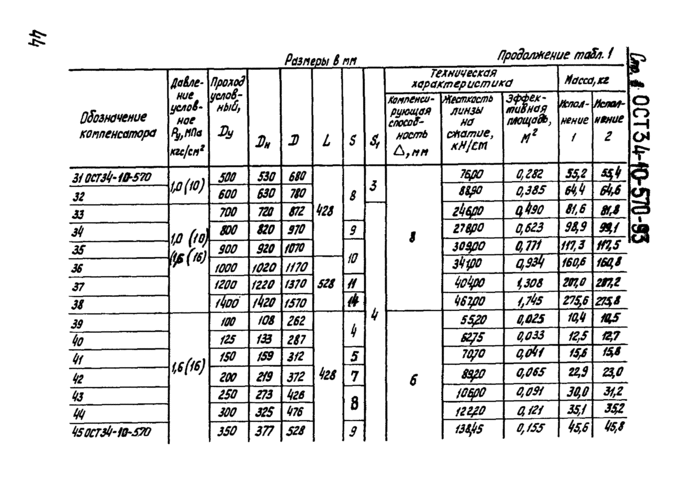 44
Размеры в мм
Продолжение табл. 1
Стр. 8 ОСТ34-10-570-93
Обозначение компенсатора
Давление условное Ру, МПа кгс/см²
Проход условный, Dу
Dн
D
L
S
S₁
Техническая характеристика
Компенсирующая способность Δ, мм
Жесткость линзы на сжатие, кН/см
Эффективная площадь, м²
Масса, кг
Исполнение 1
Исполнение 2
31 ОСТ34-10-570 1,0 (10) 500 530 680 428 8 3 8 76,00 0,282 55,2 55,4
32 600 630 780 88,90 0,385 64,4 64,6
33 1,0 (10) 1,6 (16) 700 720 872 4 246,00 0,490 81,6 81,8
34 800 820 970 9 278,00 0,623 98,9 99,1
35 900 920 1070 10 309,00 0,771 117,3 117,5
36 1000 1020 1170 528 341,00 0,934 160,6 160,8
37 1200 1220 1370 11 404,00 1,308 207,0 207,2
38 1400 1420 1570 14 467,00 1,745 275,6 275,8
39 1,6 (16) 100 108 262 428 4 6 55,20 0,025 10,4 10,5
40 125 133 287 62,75 0,033 12,5 12,7
41 150 159 312 5 70,70 0,041 15,6 15,8
42 200 219 372 7 89,20 0,065 22,9 23,0
43 250 273 426 8 106,00 0,091 30,0 31,2
44 300 325 476 122,20 0,121 35,1 35,2
45 ОСТ34-10-570 350 377 528 9 138,45 0,155 45,6 45,8